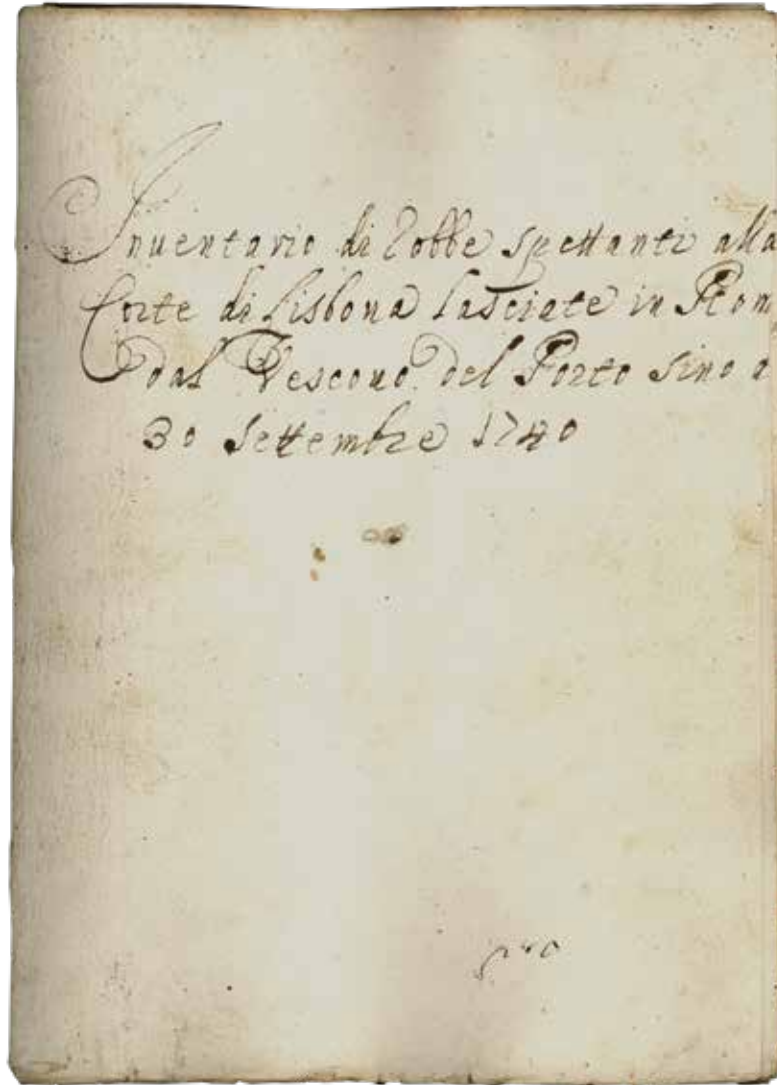 Inuentario di Robbe spettanti alla
Corte di Lisbona lasciate in Rom
dal Vescouo del Porto sino a
30 Settembre 1740